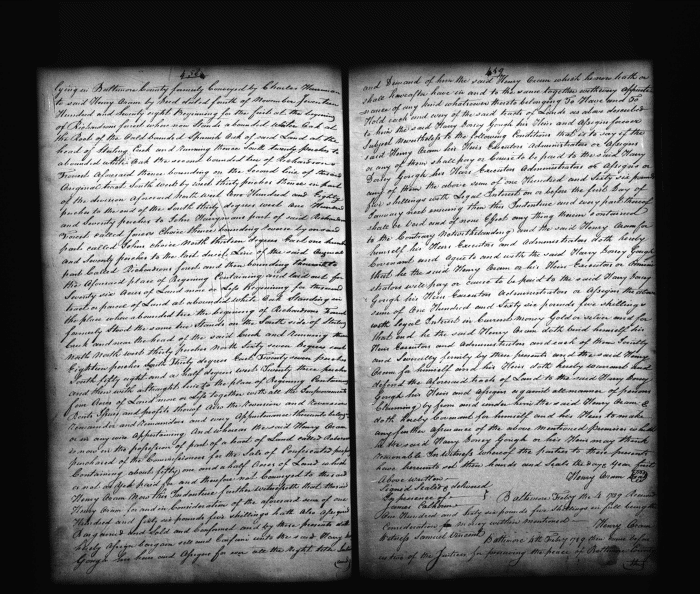 lying in Baltimore County formerly Conveyed by Charles
to said Henry Oram by Deed dated fourth of November Seventeen
Hundred and Seventy eight Beginning for the first at the beginning
of Richardsons forrest which now stands a bounded White Oak at
the Root of the Old bounded Spanish Oak of said Land at the
head of Run and Running thence South twenty perches to
a bounded white Oak the second bounded tree of Richardsons
Forrest Aforesaid thence bounding on the Second line of this
Original tract South West by west thirty perches thence on part
of the division Aforesaid North and One Hundred and Eighty
perches to the end of the South thirty degrees west One Hundred
and Seventy perches to John part of said Richardsons
Forrest called Choice thence bounding reversely on said
part called John choice North thirteen degrees East one hundred
and Seventy perches to the last line of the said Original
part Called Richardsons forrest and then bounding thereon to
the Aforesaid place of Beginning Containing and laid out for
Twenty six Acres of Land more or Less Beginning for the second
tract or parcel of Land at a bounded white Oak Standing in
the place where a bounded tree the beginning of Richardsons Forrest
formerly Stood the same tree Stands on the South side of
and near the head of the said and Running thence
North West thirty perches North Sixty seven degrees
Eighteen perches South thirty degrees East Twenty seven perches
South fifty eight and a half degrees West Twenty three perches
and then with a straight line to the place of Beginning Containing
five Acres of Land more or Less Together with all the Improvements
Rents Issues and profits thereof Also the Reversion and Reversions
Remainder and Remainders and every Appurtenance thereunto belonging
or in any wise Appertaining And whereas the said Henry Oram
is now in the possession of part of a tract of Land called
purchased of the Commissioners for the Sale of Confiscated property
Containing about fifty one and a half Acres of Land which
is not as yet paid for and therefore not Conveyed to the said
Henry Oram Now this Indenture further witnesseth that the said
Henry Oram for and in Consideration of the aforesaid sum of one
Hundred and sixty six pounds five shillings hath Also
Bargained and Sold and Confirmed and by these presents doth
hereby Assign bargain sell and Confirm unto the said Harry Dorsey
Gough his heirs and Assigns for ever all the Right title
459
and Demand of him the said Henry Oram which he now hath or
shall hereafter have in and to the same together with every Appurte
nance of any kind whatsoever thereto belonging To Have and To
Hold each and every of the said tracts of Land as above described
to him the said Harry Dorsey Gough his Heirs and Assigns forever
Subject nevertheless to the following Condition that is to say if the
said Henry Oram his Heirs Executors Administrators or Assigns
or any of them shall pay or Cause to be paid to the said Harry
Dorsey Gough his Heirs Executors Administrators or Assigns or
any of them the above sum of One Hundred and Sixty six pounds
five shillings with Legal Interest on or before the first Day of
January next ensuing then this Indenture and every part thereof
shall be Void and of none Effect any thing therein Contained
to the Contrary Notwithstanding And the said Henry Oram for
himself his Heirs Executors and Administrators doth hereby
Covenant and Agree to and with the said Harry Dorsey Gough
that he the said Henry Oram or his Heirs Executors or Admini
strators will pay or cause to be paid to the said Harry Dorsey
Gough his Heirs Executors Administrators or Assigns the above
sum of One Hundred and Sixty six pounds five shillings
with Legal Interest in Current Money Gold or silver and for
that end he the said Henry Oram doth bind himself his
Heirs Executors and Administrators and each of them Jointly
and Severally firmly by these presents and the said Henry
Oram for himself and his Heirs doth hereby warrant and
defend the aforesaid tracts of Land to the said Harry Dorsey
Gough his Heirs and Assigns against all manner of persons
Claiming by from or under him the said Henry Oram &
doth hereby Covenant for himself and his Heirs to make
any further assurance of the above mentioned premises which
he the said Harry Dorsey Gough or his Heirs may think
reasonable In witness whereof the parties to these presents
have hereunto set their hands and Seals the Day & Year first
Above written Henry Oram Seal
Signed Sealed & delivered
In presence of Baltimore Feby the 4 1789 Received
James Calhoun
One Hundred and sixty six pounds five Shillings in full being the
Consideration money within mentioned Henry Oram
Witness Samuel Baltimore 4th Feby 1789 then came before
of the Justices for preserving the peace of Baltimore County